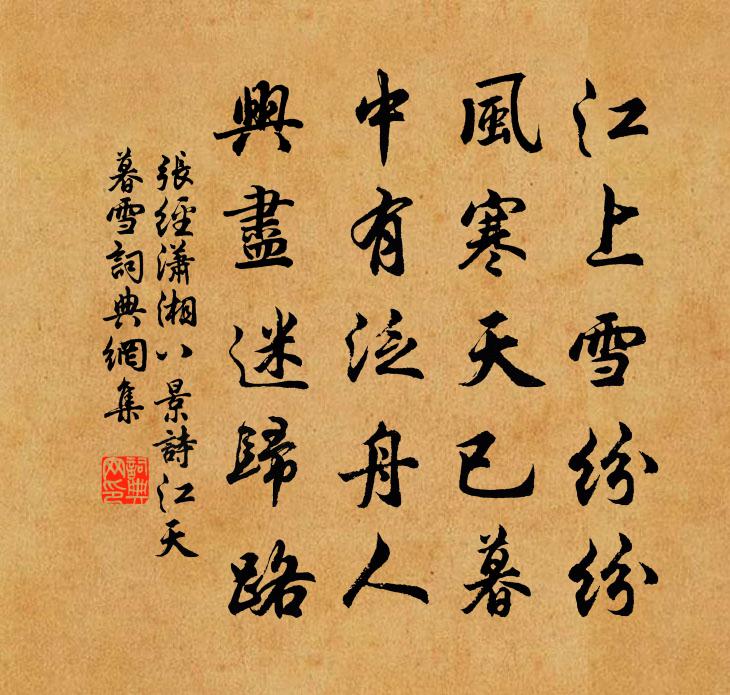 江上雪紛紛
風寒天已暮
中有泛舟人
興盡迷歸路
張經瀟湘八景詩江天
暮雪詞典網集
詞典
网印